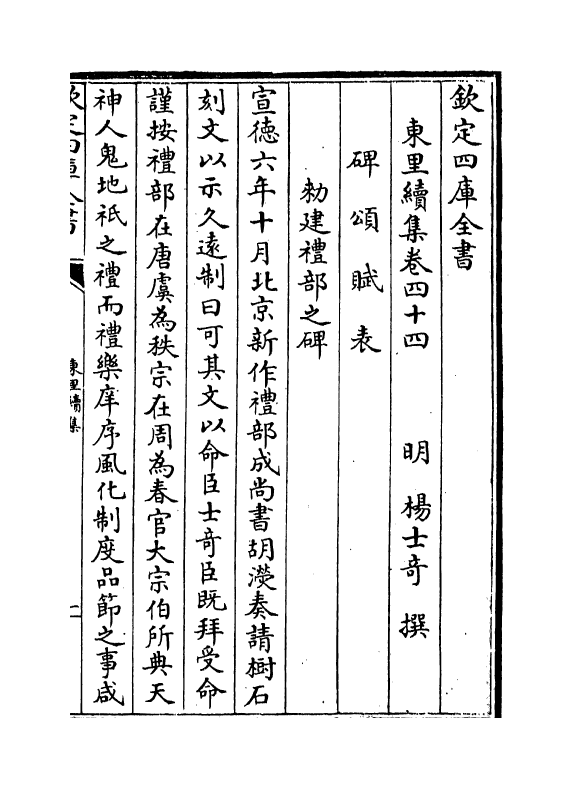 欽定四庫全書
東里續集卷四十四 明 楊士奇 撰
碑頌賦表
勅建禮部之碑
宣徳六年十月北京新作禮部成尚書胡濙奏請樹石
刻文以示久遠制曰可其文以命臣士奇臣既拜受命
謹按禮部在唐虞為秩宗在周為春官大宗伯所典天
神人鬼地祇之禮而禮樂庠序風化制度品節之事咸
欽定四庫全書
東里續集
一